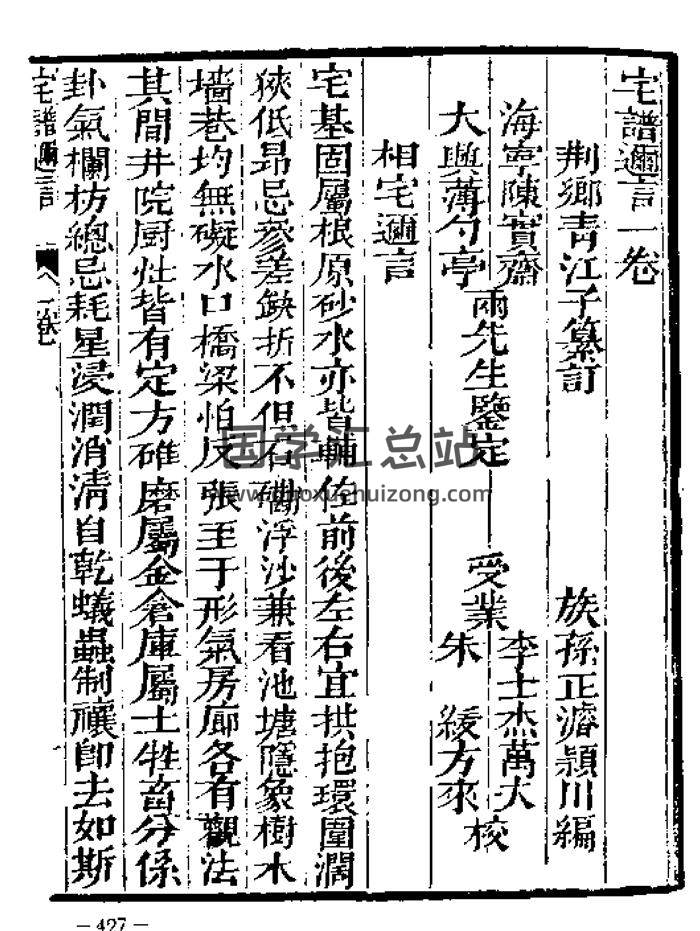 宅譜邇言一卷
荆鄉青江子纂訂 族孫正濬穎川編
海寧陳寶齋 大興薄勺亭 兩先生鑒定 受業 李士杰萬大 朱 綬方來 校
相宅邇言
宅基固屬根原砂水亦皆輔佐前後左右宜拱抱環圍濶
狹低昂忌參差缺折不但石磡浮沙兼看池塘隱象樹木
墻巷均無礙水口橋梁怕反張至于形氣房廊各有觀法
其間井院厨灶皆有定方碓磨屬金倉庫屬土牲畜分係
卦氣欄枋總忌耗星浸潤消清自乾蟻蟲制禳卽去如斯
宅譜邇言 一卷
国学汇总站
www.guoxuehuizong.com
— 427 —